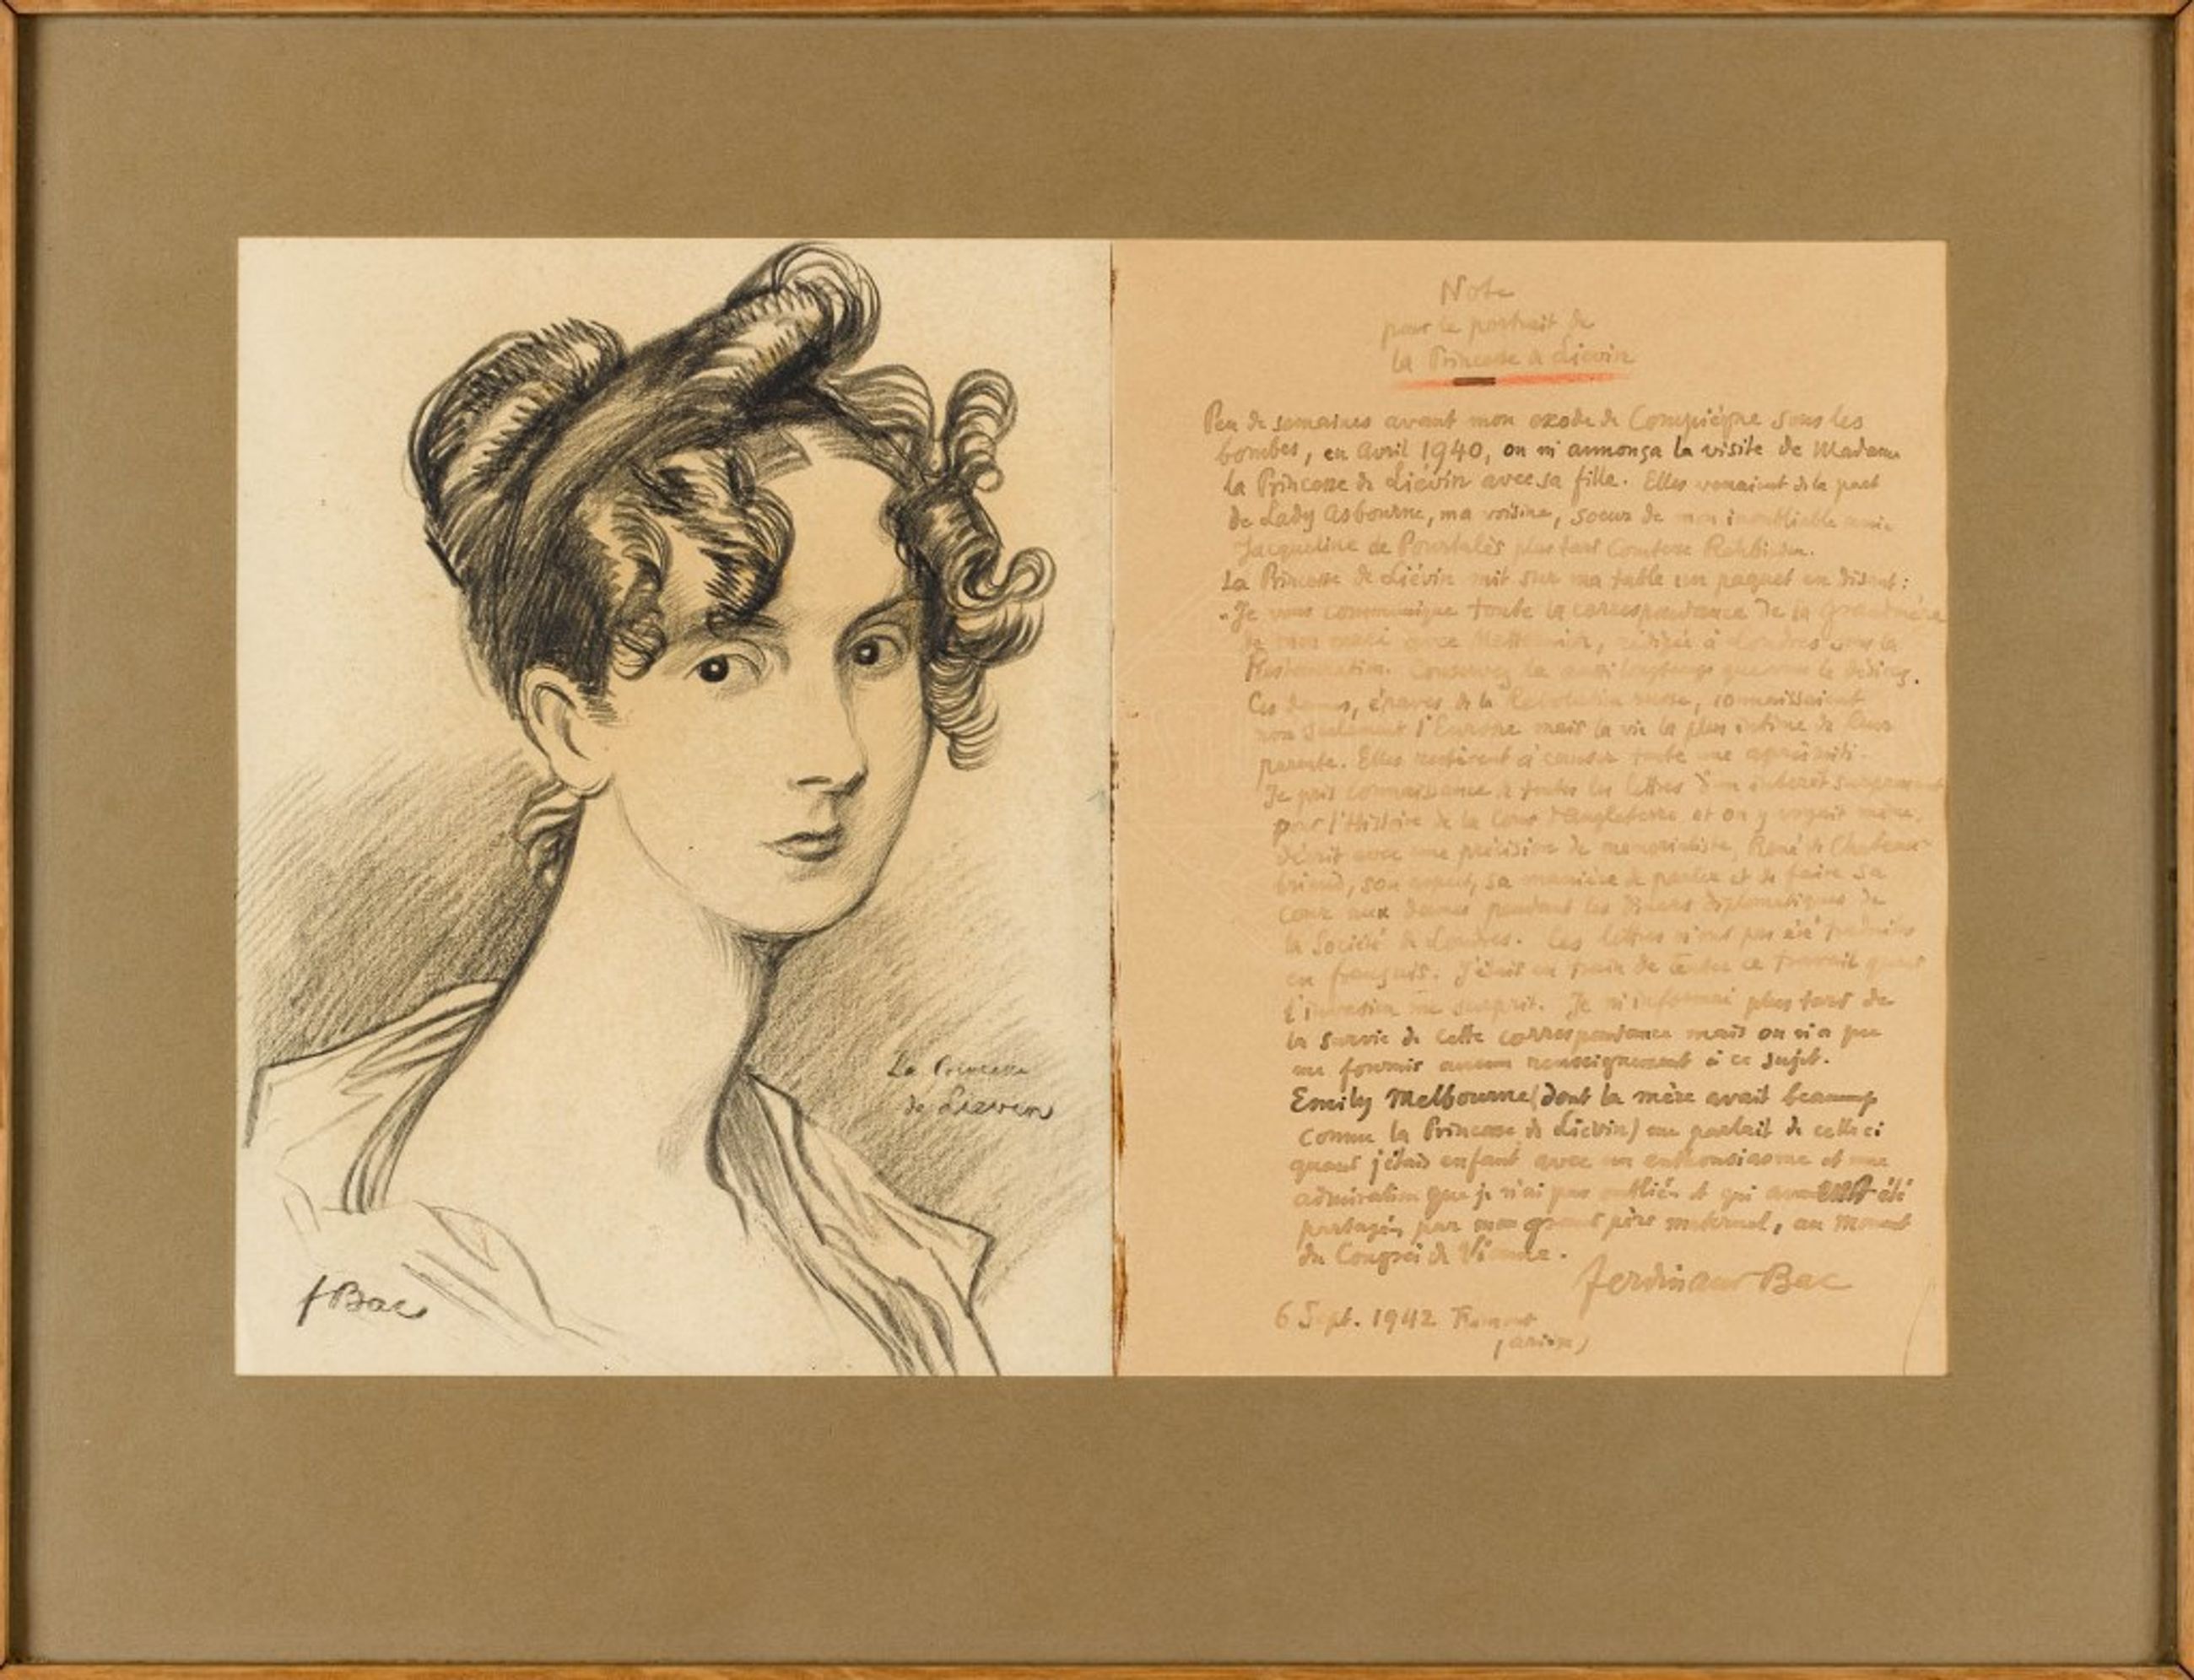 La Princesse
de Lieven
f Bac
Note
pour le portrait de
la Princesse de Liévin
Peu de semaines avant mon exode de Compiègne sous les
bombes, en Avril 1940, on m'annonça la visite de Madame
la Princesse de Liévin avec sa fille. Elles venaient de la part
de Lady Asbourne, ma voisine, soeur de mon inoubliable amie
Jacqueline de Pourtalès plus tard Comtesse
La Princesse de Liévin mit sur ma table un paquet en disant :
"Je vous communique toute la correspondance de la grandmère
de mon mari avec Metternich, rédigée à Londres sous la
Restauration. Conservez la aussi longtemps que vous le désirez.
Ces dames, épaves de la Révolution russe, connaissaient
non seulement l'Europe mais la vie la plus intime de leur
parente. Elles restèrent à causer toute une après-midi.
Je pris connaissance de toutes les lettres d'un intérêt surprenant
pour l'Histoire de la Cour d'Angleterre et on y voyait même,
décrit avec une précision de memorialiste, René de Chateau-
briand, son aspect, sa manière de parler et de faire sa
cour aux dames pendant les diners diplomatiques de
la Société de Londres. Ces lettres n'ont pas été
en français. J'étais en train de tenter ce travail quand
l'invasion me surprit. Je m'informai plus tard de
la survie de cette correspondance mais on n'a pu
me fournir aucun renseignement à ce sujet.
Emily Melbourne (dont la mère avait beaucoup
connu la Princesse de Liévin) me parlait de celle ci
quand j'étais enfant avec un enthousiasme et une
admiration que je n'ai pas oubliés et qui avaient été
partagés par mon grand père maternel, au moment
du Congrès de Vienne.
Ferdinand Bac
6 Sept. 1942